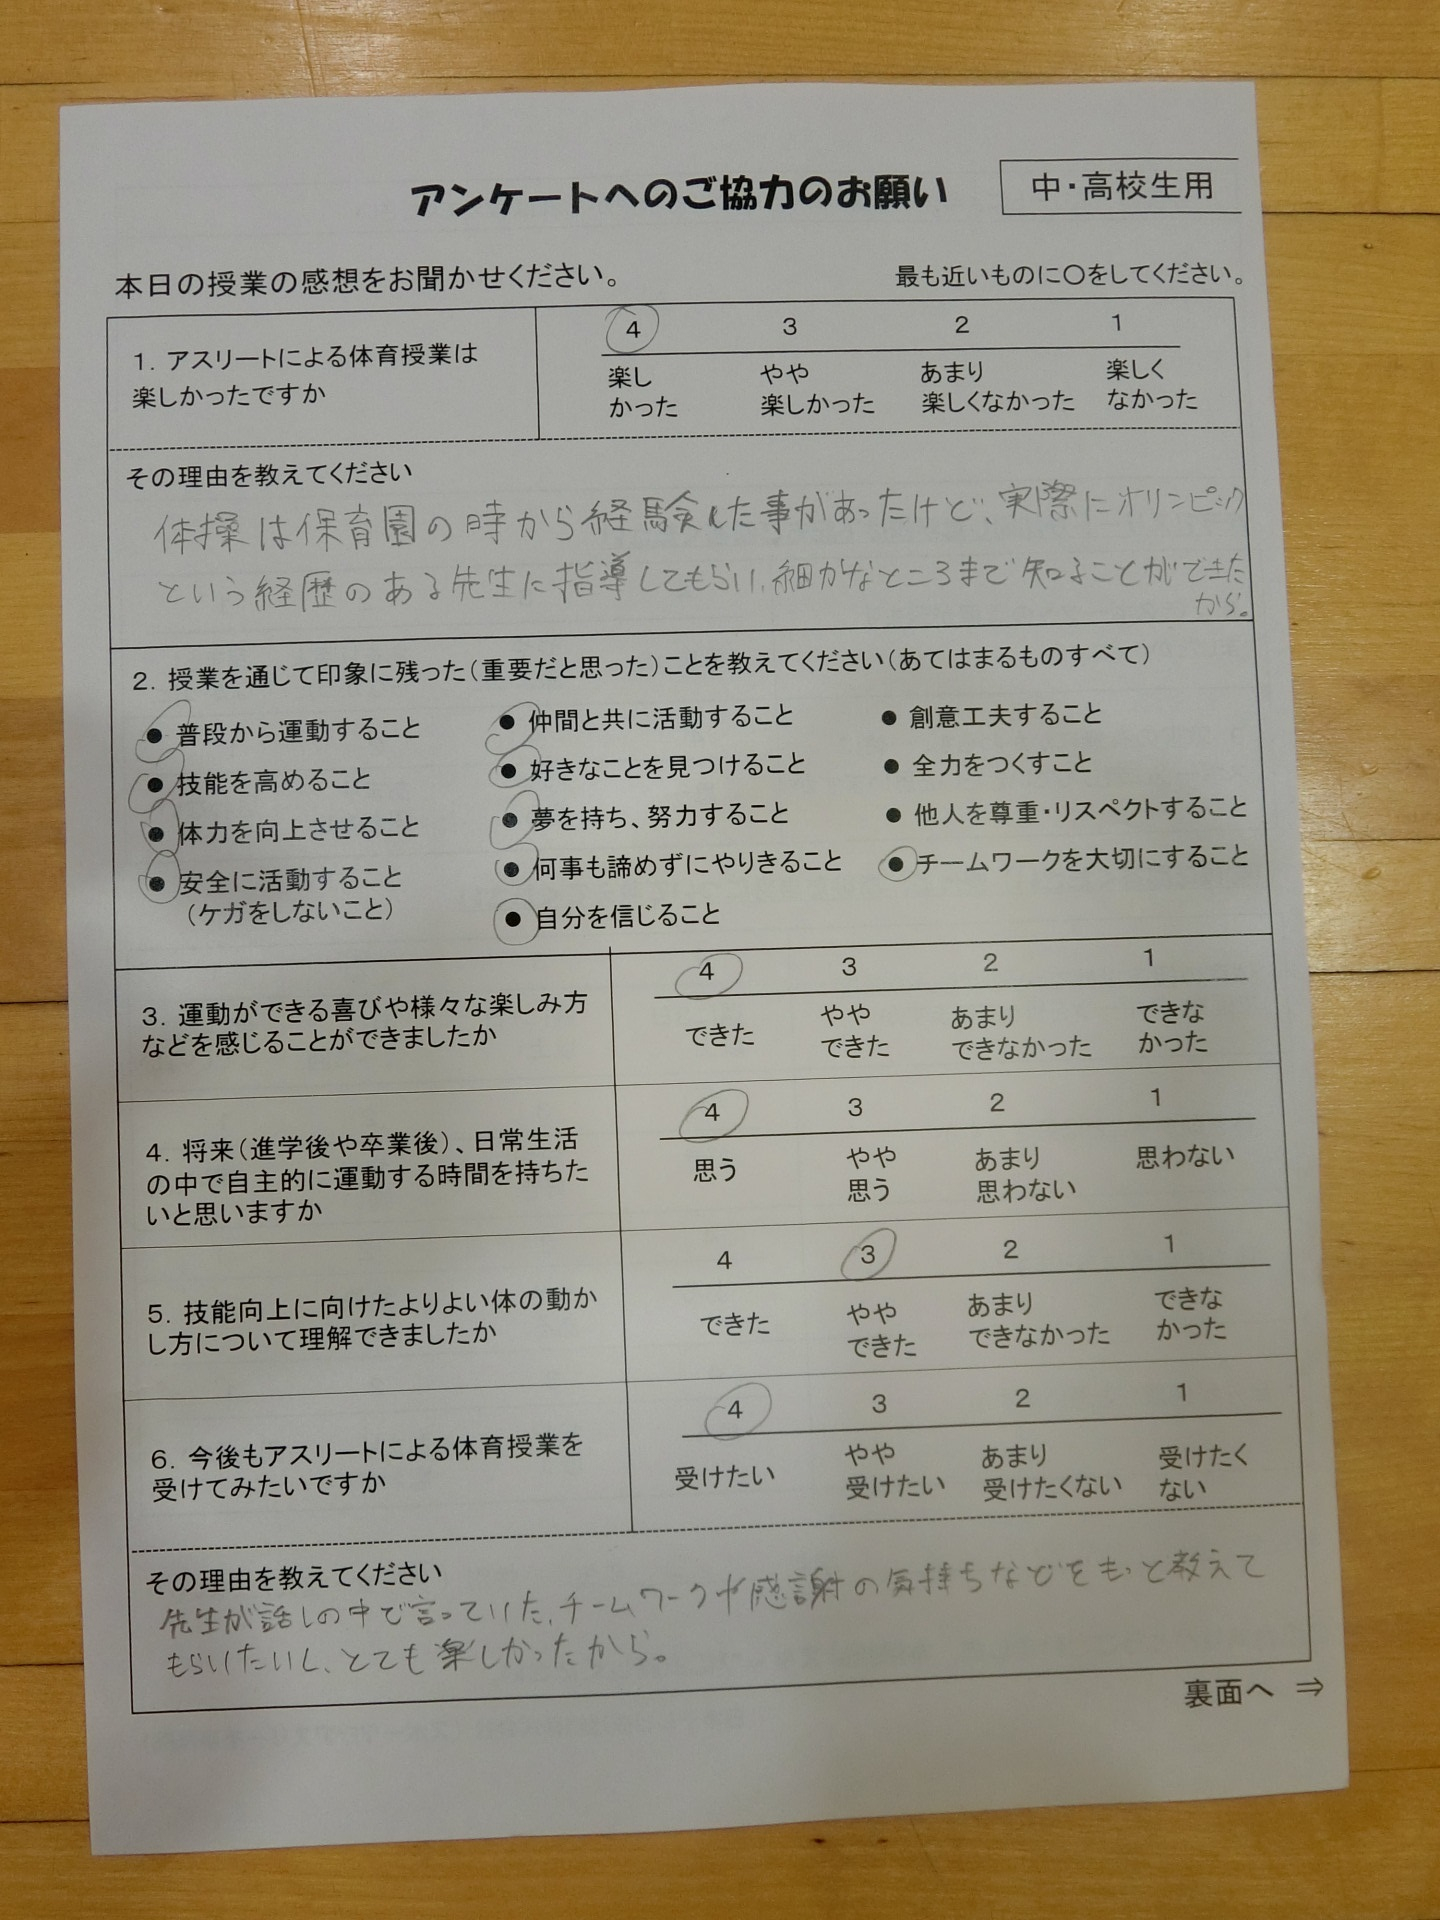 アンケートへのご協力のお願い
中・高校生用
本日の授業の感想をお聞かせください。
最も近いものに〇をしてください。
1. アスリートによる体育授業は
楽しかったですか
4 3 2 1
楽し やや あまり 楽しく
かった 楽しかった 楽しくなかった なかった
その理由を教えてください
体操は保育園の時から経験した事があったけど、実際にオリンピック
という経歴のある先生に指導してもらい、細かなところまで知ることができた
から。
2. 授業を通じて印象に残った(重要だと思った)ことを教えてください(あてはまるものすべて)
● 普段から運動すること
● 技能を高めること
● 体力を向上させること
● 安全に活動すること
(ケガをしないこと)
● 仲間と共に活動すること
● 好きなことを見つけること
● 夢を持ち、努力すること
● 何事も諦めずにやりきること
● 自分を信じること
● 創意工夫すること
● 全力をつくすこと
● 他人を尊重・リスペクトすること
● チームワークを大切にすること
3. 運動ができる喜びや様々な楽しみ方
などを感じることができましたか
4 3 2 1
できた やや あまり できな
できた できなかった かった
4. 将来(進学後や卒業後)、日常生活
の中で自主的に運動する時間を持ちた
いと思いますか
4 3 2 1
思う やや あまり 思わない
思う 思わない
5. 技能向上に向けたよりよい体の動か
し方について理解できましたか
4 3 2 1
できた やや あまり できな
できた できなかった かった
6. 今後もアスリートによる体育授業を
受けてみたいですか
4 3 2 1
受けたい やや あまり 受けたく
受けたい 受けたくない ない
その理由を教えてください
先生が話しの中で言っていた、チームワークや感謝の気持ちなどをもっと教えて
もらいたいし、とても楽しかったから。
裏面へ ⇒